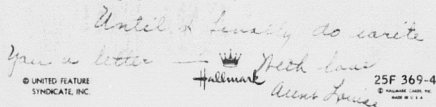 Until I finally do write
you a letter — With love
Aunt Louise
Hallmark
© UNITED FEATURE
SYNDICATE, INC.
25F 369-4
© HALLMARK CARDS, INC.
MADE IN U.S.A.